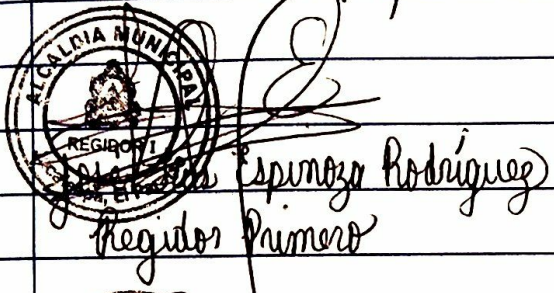 ALCALDIA MUNICIPAL
REGIDOR I
Espinoza Rodríguez
Regidor Primero